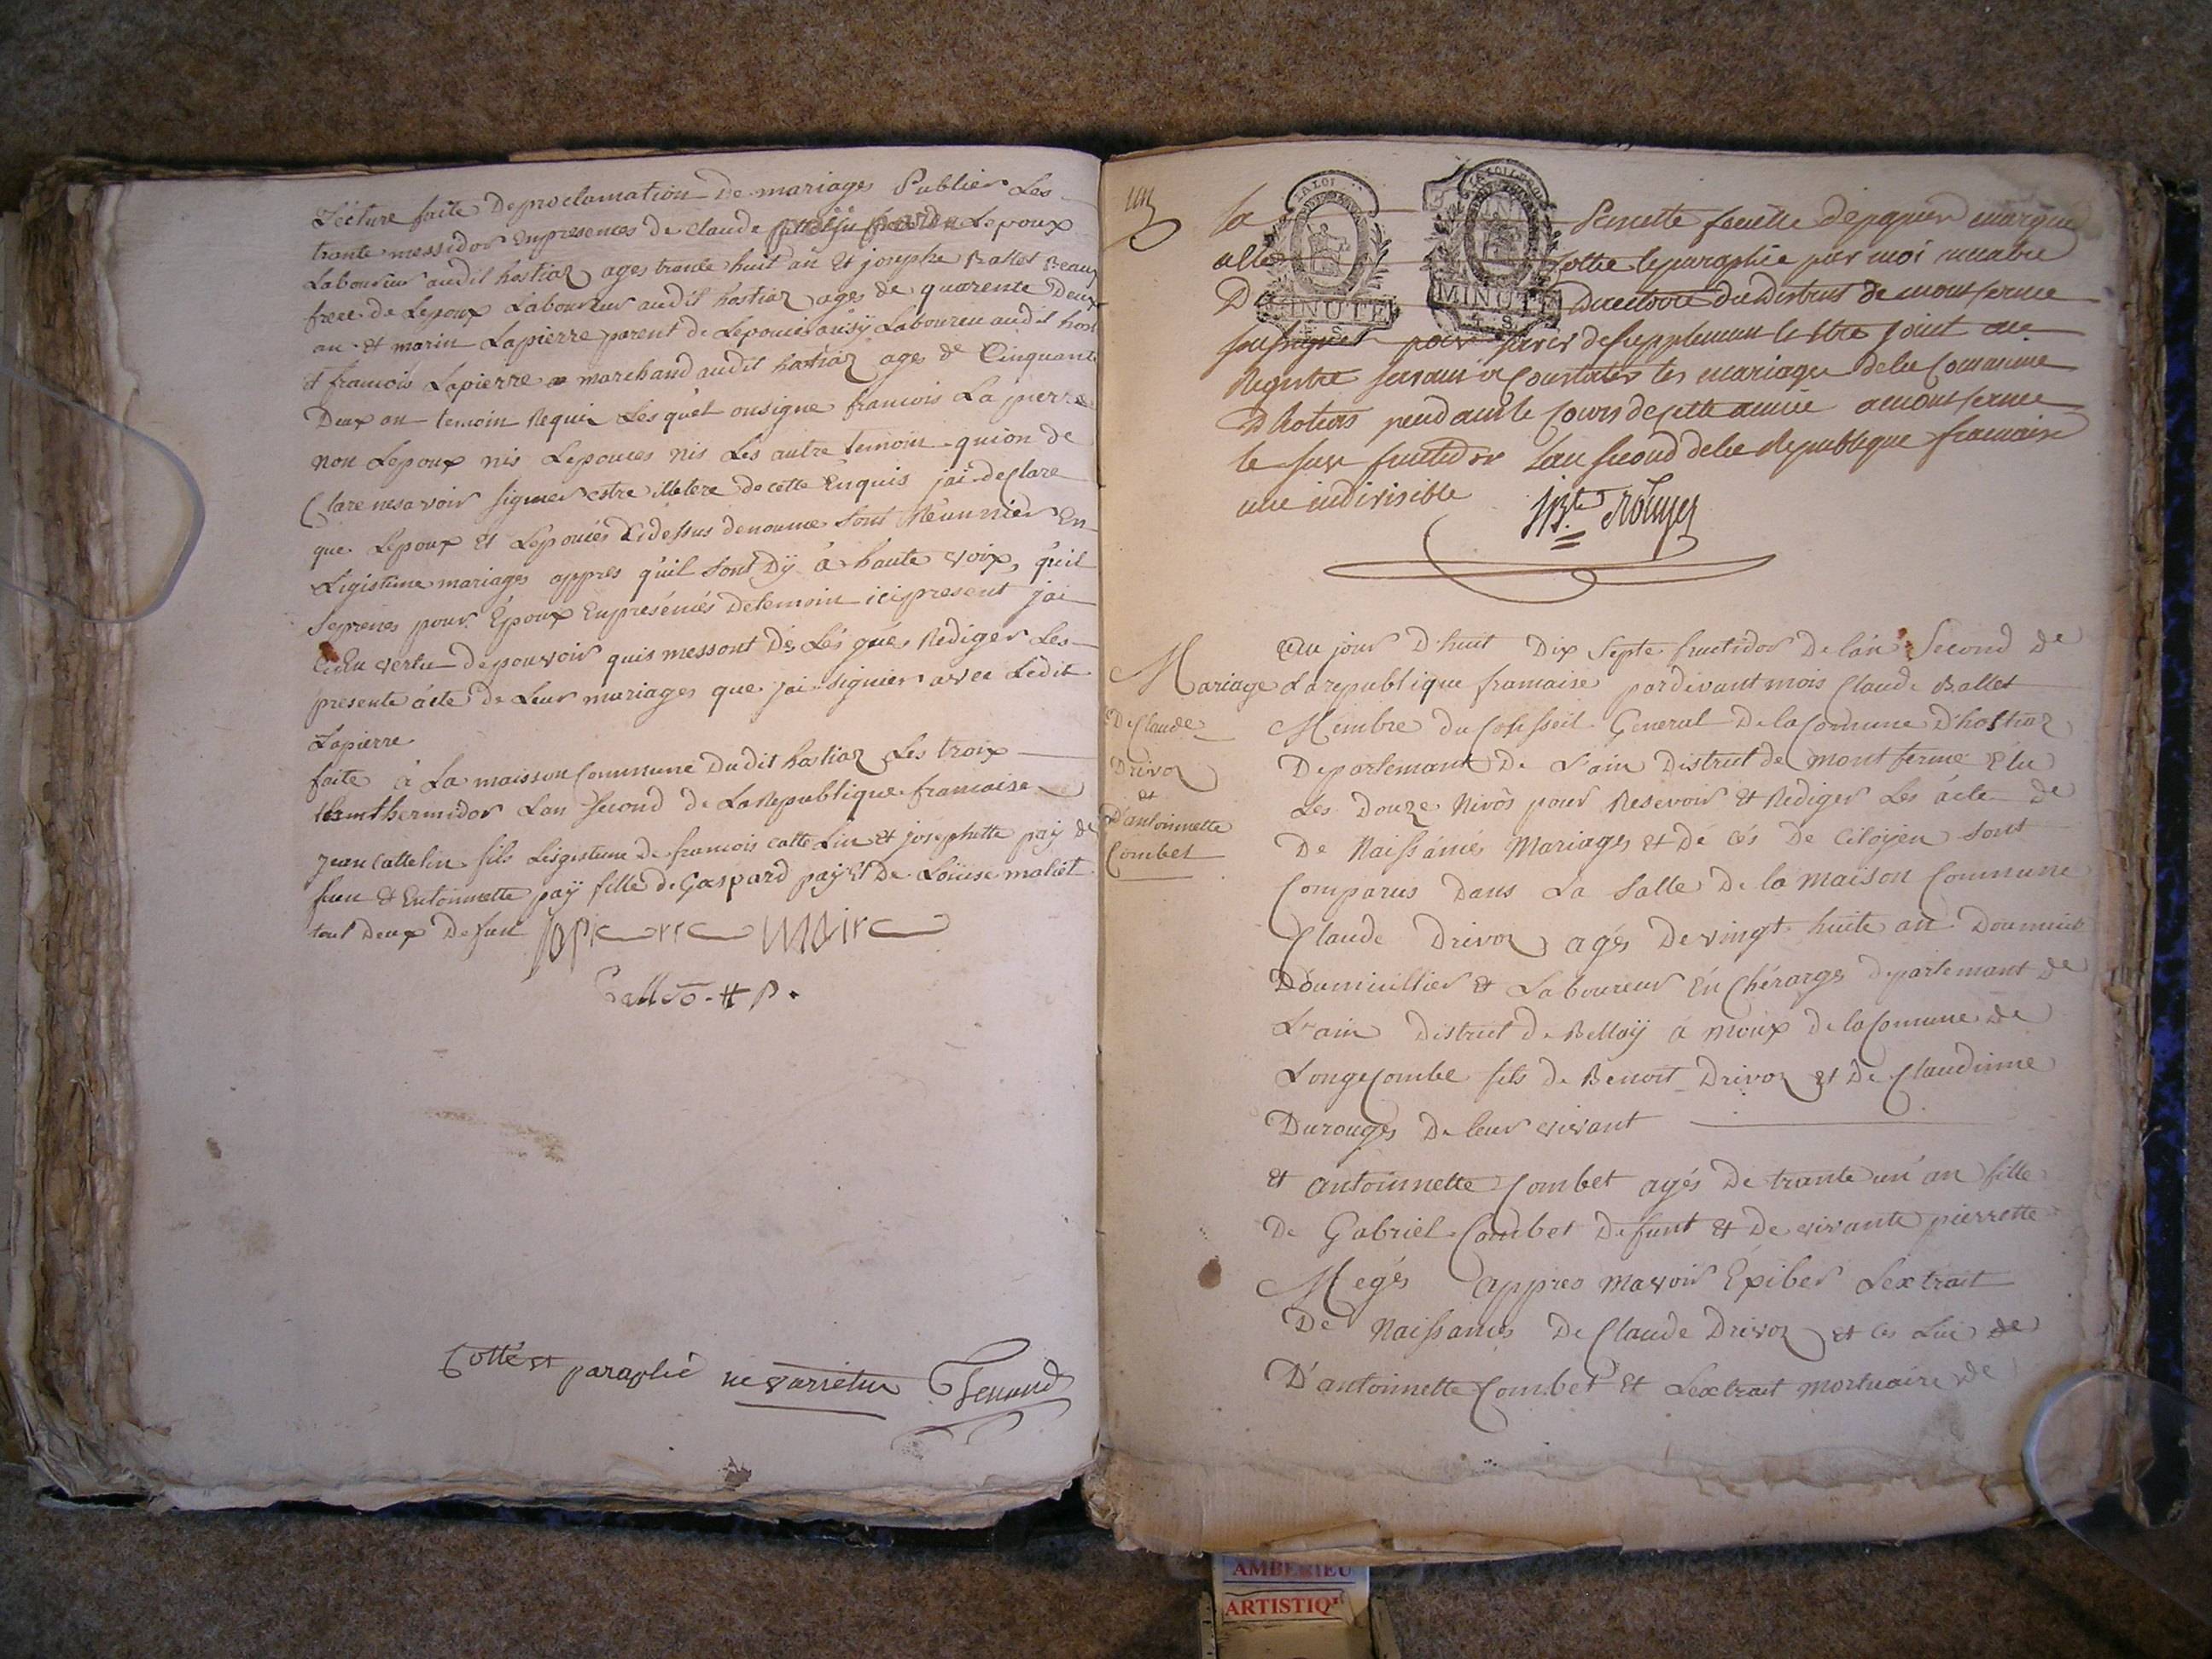 Lécture faite De proclamation De mariages Publier Les
trante messidor Enpresences de Claude Lepoux
Laboureur audit hostiaz ages trante huit an Et josephe Ballet Beaux
frere de Lepoux Laboureur audit hostiaz ages de quarente Deux
an et marin Lapierre parent de Lepouse aussÿ Laboureu audit host
et francois Lapierre marchand audit hostiaz ages de Cinquante
Deux an temoin Requi Lesquel onsigne francois La pierre
Non Lepoux nis Lepouces Nis Les autre temoin quion de
Clare nesavoir signer estre illetere decette Enquis jai deClare
que Lepoux Et Lepouces Cidessus denoumes sont Réunnier En
Ligistime mariages appres quil sont Dÿ á haute voix, quil
seprenes pour Époux Enpresénces detemoin ici present jai
Enla vertu depouvoir quis messont Dé Lé gues Rediger Les
presente ácte de Leur mariages que jai signier avec Ledit
Lapierre
faite à La maisson Commune Dudit hostiaz Les troix
thermidor Lan second de La Republique francaise
jean Cattelin fils Lésgistime de francois Catte Lin et josephette paÿ de
fun et Entoinnette paÿ fille de Gaspard paÿ Et De Loüise maliet
tout Deux Defun lapierre maire
Ballet - H P.
Cotté et paraphé ne varietur
IIII
la
alle
De
LA LOI
MINUTE
4. S.
MINUTE
4. S.
Presente feuille depapier marqué
Cottee et paraphée par moi membre
Directoire du District de montferme
soussigné pour servir de supplement le titre joint au
Registre servant a Constater les mariages dela Commune
D'hotias pendant le Cours decette année a montferme
le six fructidor L'an second dela Republique francaise
une indivisible
Mariage
De Claude
Drivoz
et
D'antoinnette
Combet
Cedu jour D'huit Dix Septe fructidor De lán Second de
Larepublique francaise pardevant mois Claude Ballet
Membre du Consseil General De la Comune D'hostiaz
Departemant De L'ain District de montferme Elu
Les Douze Nivôs pour Resevoir Et Rediger Les ácte de
De Naissánces Mariages et dé cés De Citoÿen sont
Comparus Dans La Salle De la Maison Commune
Claude Drivoz agés De vingt huite an
Doumicillier et Laboureur Én Chérarges departemant de
L'ain District de Bellaÿ à Moux De la Comune de
Longecombe fils de Benoit Drivoz et De Claudinne
Durouges De leur vivant
et antoinnette Combet agés de trante un an fille
De Gabriel Combet Defunt et De vivante pierrette
Megés appres mavoir Éxiber Lextrait
De Naissances De Claude Drivoz et ces Lui de
D'antoinnette Combet Et Lextrait mortuaire de
AMBERIEU
ARTISTIQ